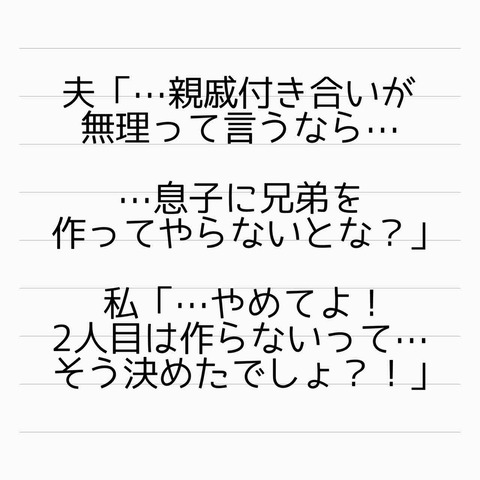 夫「…親戚付き合いが
無理って言うなら…
…息子に兄弟を
作ってやらないとな？」
私「…やめてよ！
2人目は作らないって…
そう決めたでしょ？！」